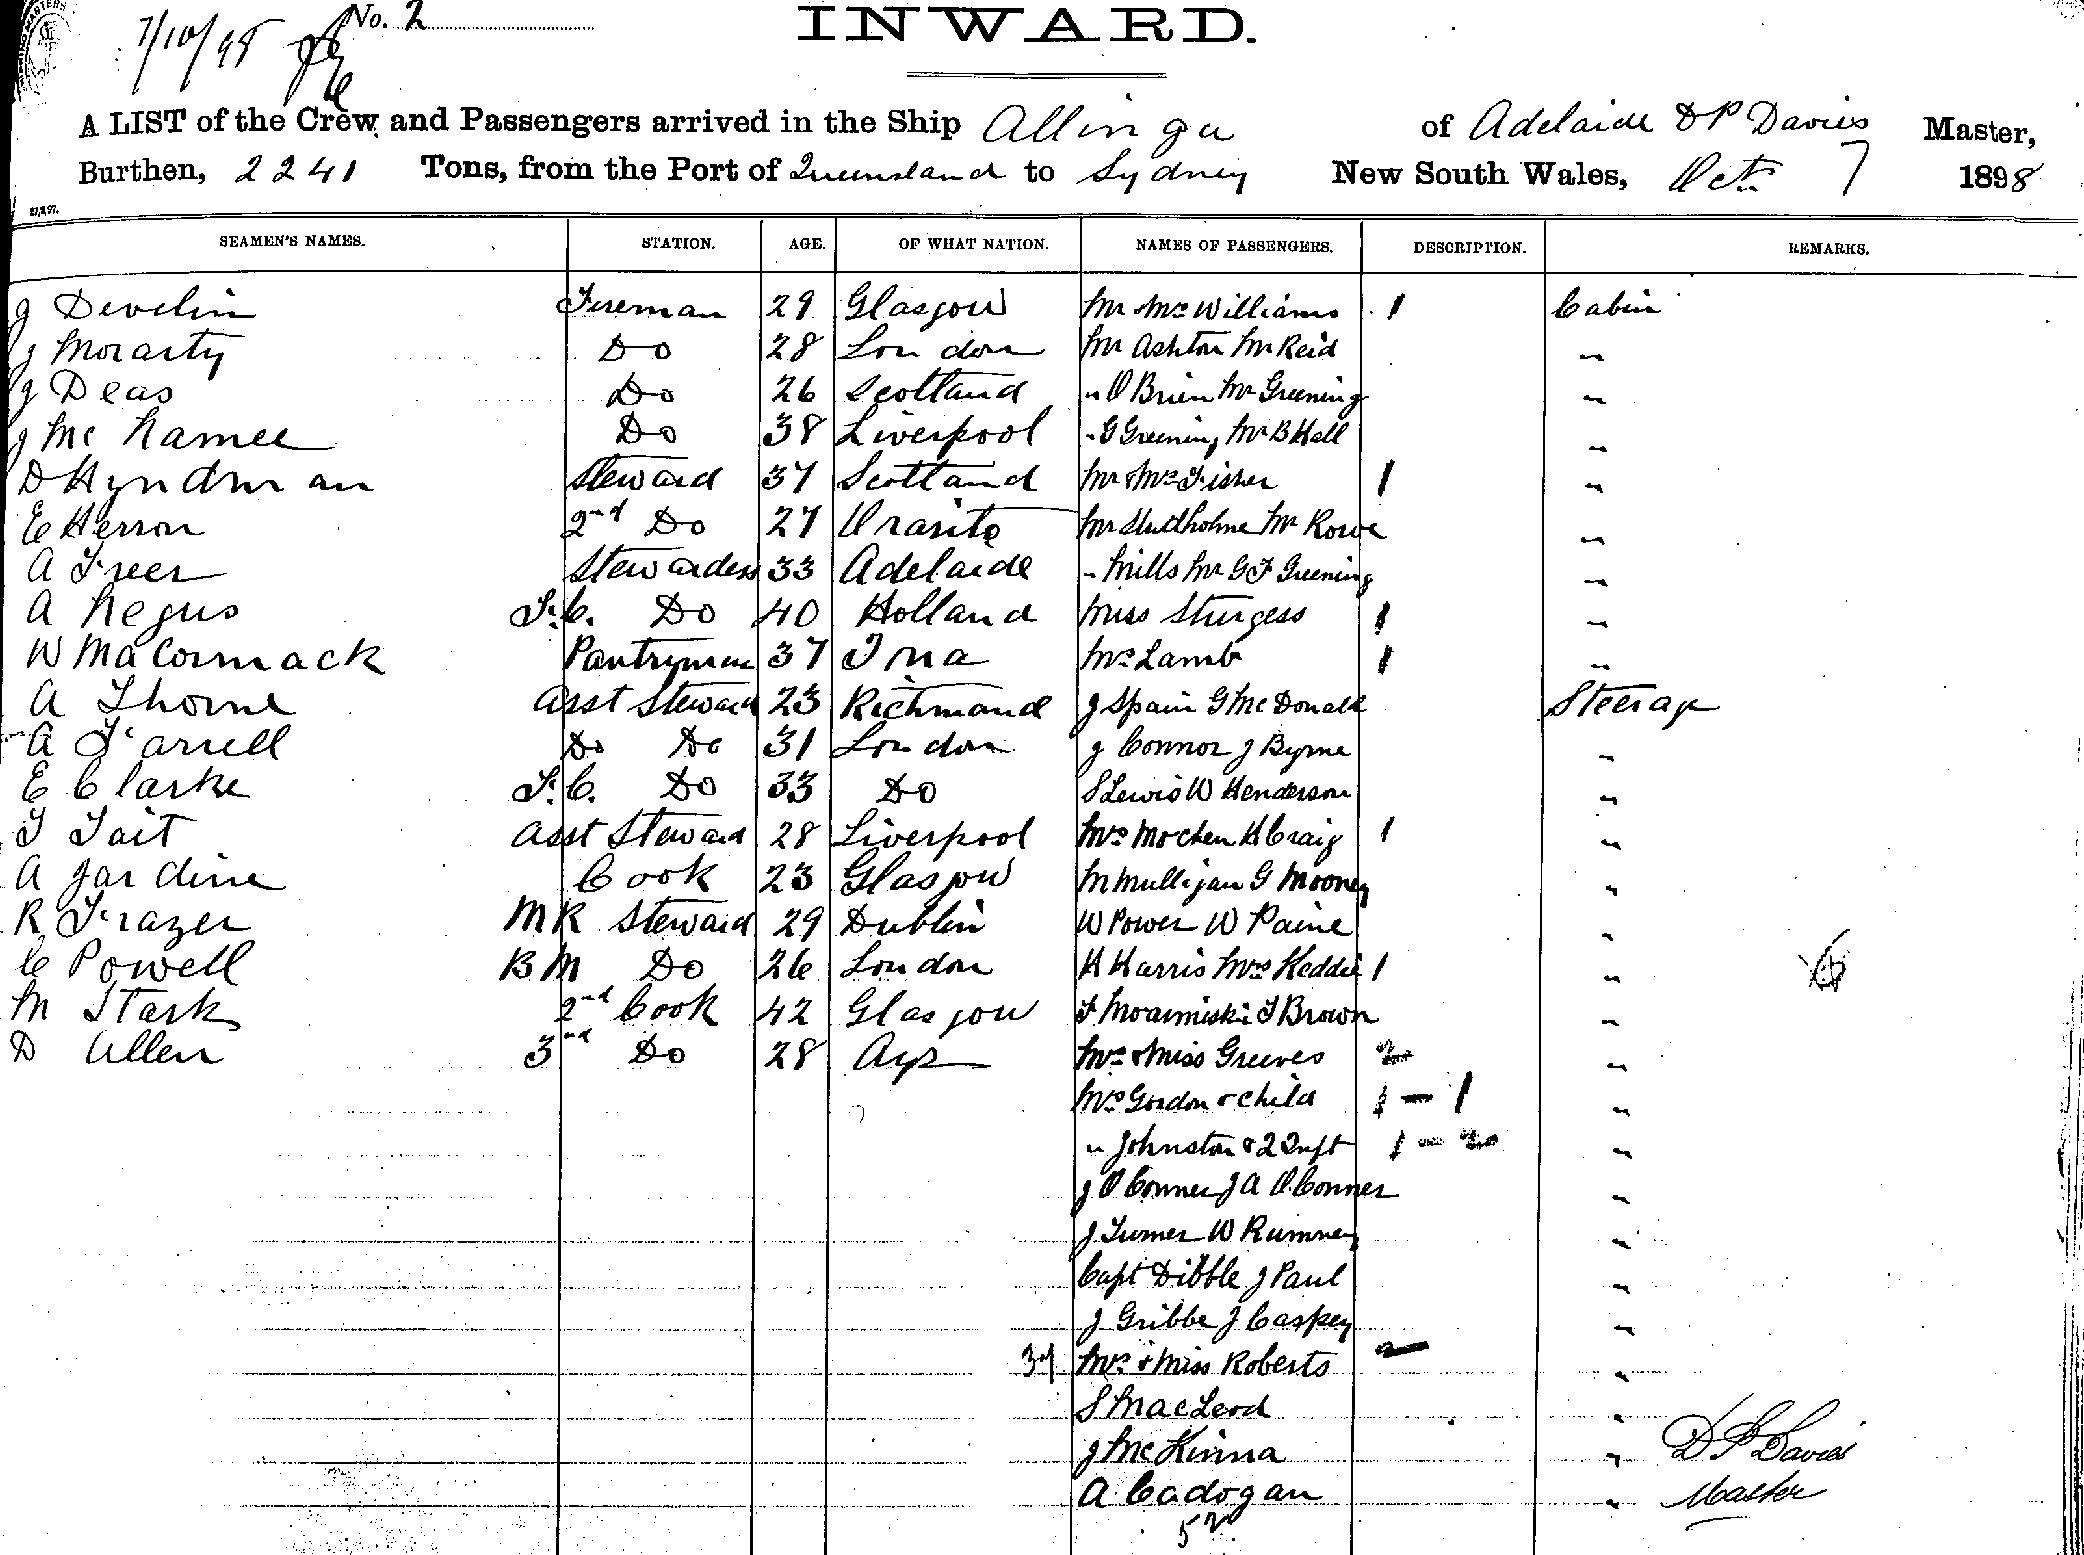 7/10/98 No. 2
INWARD.
A LIST of the Crew and Passengers arrived in the Ship Allinga of Adelaide D P Davies Master,
Burthen, 2241 Tons, from the Port of Queensland to Sydney New South Wales, Oct 7 1898
SEAMEN'S NAMES. STATION. AGE. OF WHAT NATION. NAMES OF PASSENGERS. DESCRIPTION. REMARKS.
J Develin Fireman 29 Glasgow Mr & Mrs Williams 1 Cabin
J Morarty Do 28 London Mr Ashton Mr Reid "
J Deas Do 26 Scotland " O Brien Mr Greening "
J Mc Namee Do 38 Liverpool " G Greening Mr B Hall "
D Hyndman Steward 37 Scotland Mr & Mrs Fisher 1 "
E Herron 2nd Do 27 Mr Studholme Mr Rowe "
A Freer Stewardess 33 Adelaide " Mills Mr G F Greening "
A Negus F.C. Do 40 Holland Miss Sturgess 1 "
W MaCormack Pantryman 37 Iona Mrs Lamb 1 "
A Thorne Asst Steward 23 Richmond J Spain G McDonald Steerage
A Farrell Do Do 31 London J Connor J Byrne "
E Clarke F.C. Do 33 Do S Lewis W Henderson "
T Tait Asst Steward 28 Liverpool Mrs Mochen H Craig 1 "
A Jardine Cook 23 Glasgow M Mulligan G Mooney "
R Frazer M R Steward 29 Dublin W Power W Paine "
C Powell B M Do 26 London H Harris Mrs Keddie 1 "
M Stark 2nd Cook 42 Glasgow F T Brown "
D Allen 3nd Do 28 Ayr Mrs & Miss Greeves 2 "
Mrs Gordon & child 1 - 1 "
" Johnston & 2 Inft 1 - 2 "
J O Conner J A O Conner "
J Turner W Rumney "
Capt Dibble J Paul "
J Gribbe J Caspey "
37 Mrs & Miss Roberts 2 "
S MacLeod "
J McKinna " D P Davies
A Cadogan " Master
52